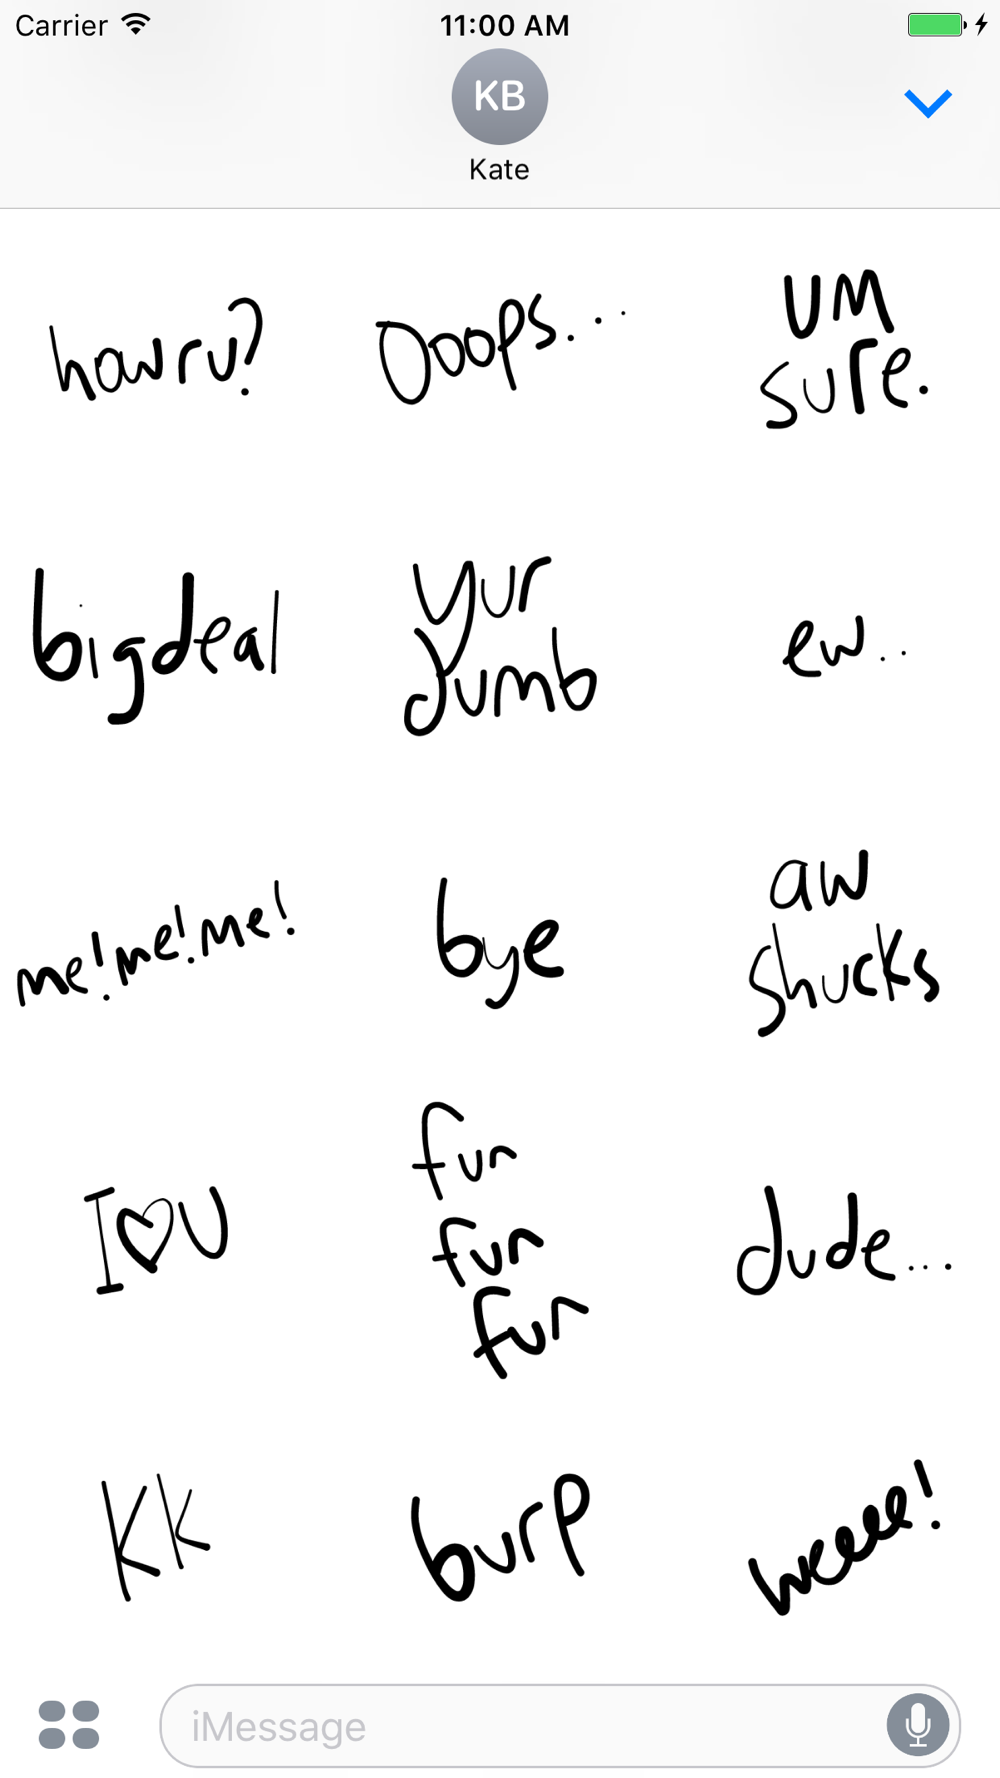 Carrier 11:00 AM
KB
Kate
how r u?
Ooops...
UM
sure.
bigdeal
yur
dumb
ew..
me!me!me!
bye
aw
shucks
I♡U
fun
fun
fun
dude...
KK
burp
weeee!
iMessage